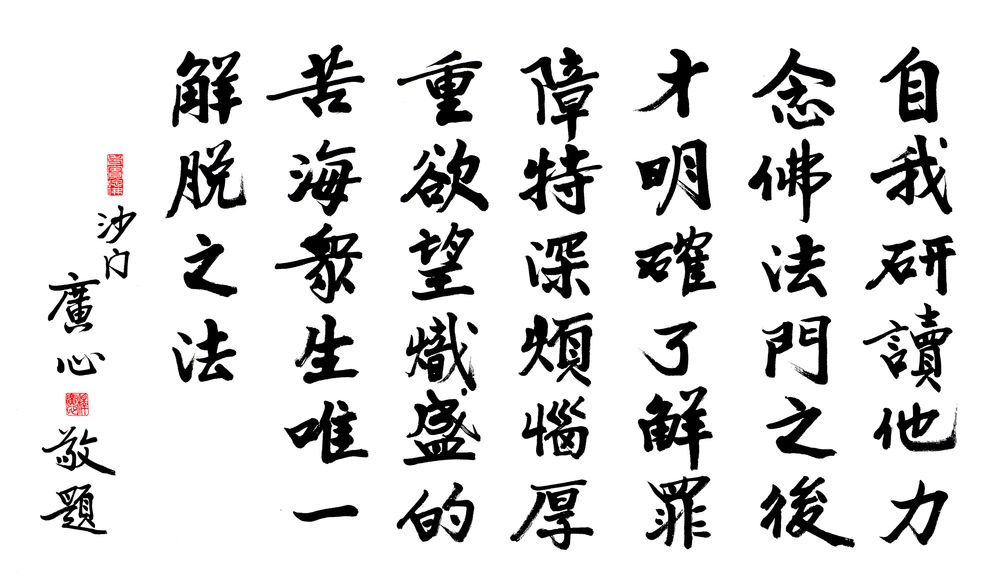 自我研讀他力
念佛法門之後
才明確了解罪
障特深煩惱厚
重欲望熾盛的
苦海眾生唯一
解脱之法
沙门
廣心
敬題